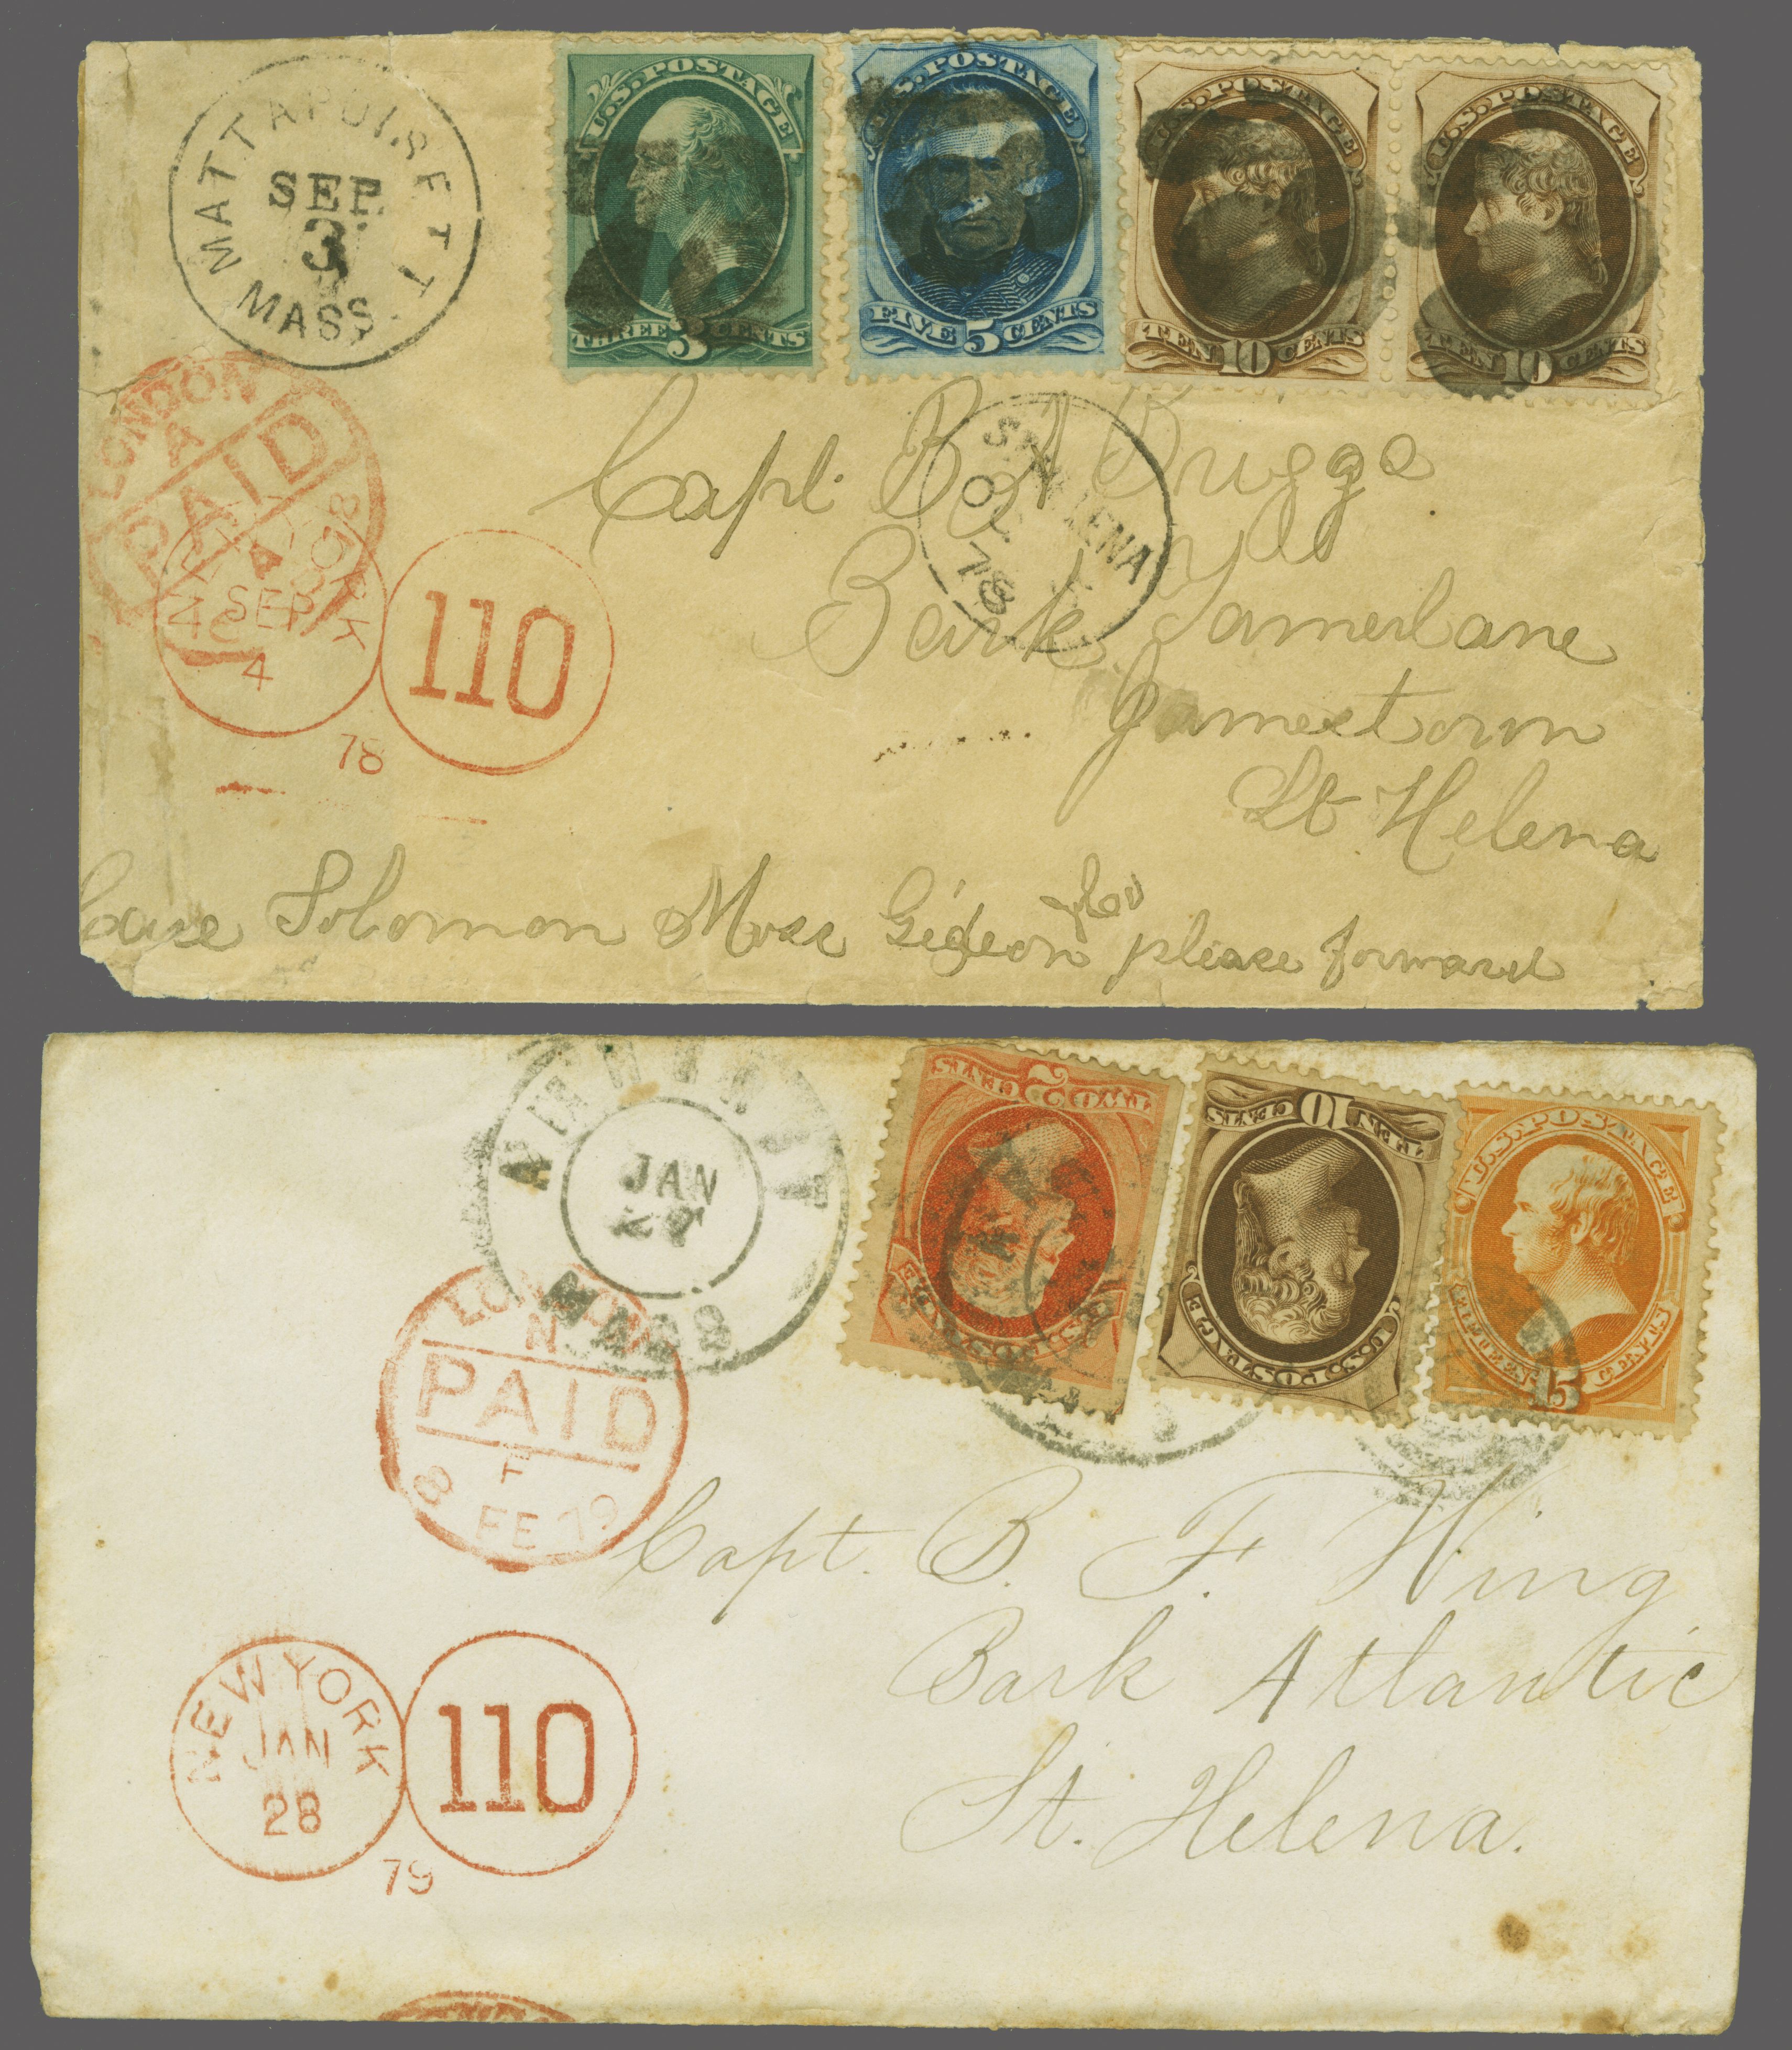 MATTAPOISETT
SEP.
3
MASS.
U.S. POSTAGE
THREE 3 CENTS
U.S. POSTAGE
FIVE 5 CENTS
U.S. POSTAGE
TEN 10 CENTS
U.S. POSTAGE
TEN 10 CENTS
LONDON
A
PAID
NEW YORK
SEP
4
78
110
ST HELENA
OC
78
Capt. Briggs
Bark Tamerlane
Jamestown
St Helena
Care Solomon Moss Gideon please forward
JAN
27
MASS
2 CENTS
TEN 10 CENTS
U.S. POSTAGE
U.S. POSTAGE
FIFTEEN 15 CENTS
LONDON
N
PAID
F
8 FE 79
Capt. B. F. Wing
Bark Atlantic
St. Helena.
NEW YORK
JAN
28
79
110